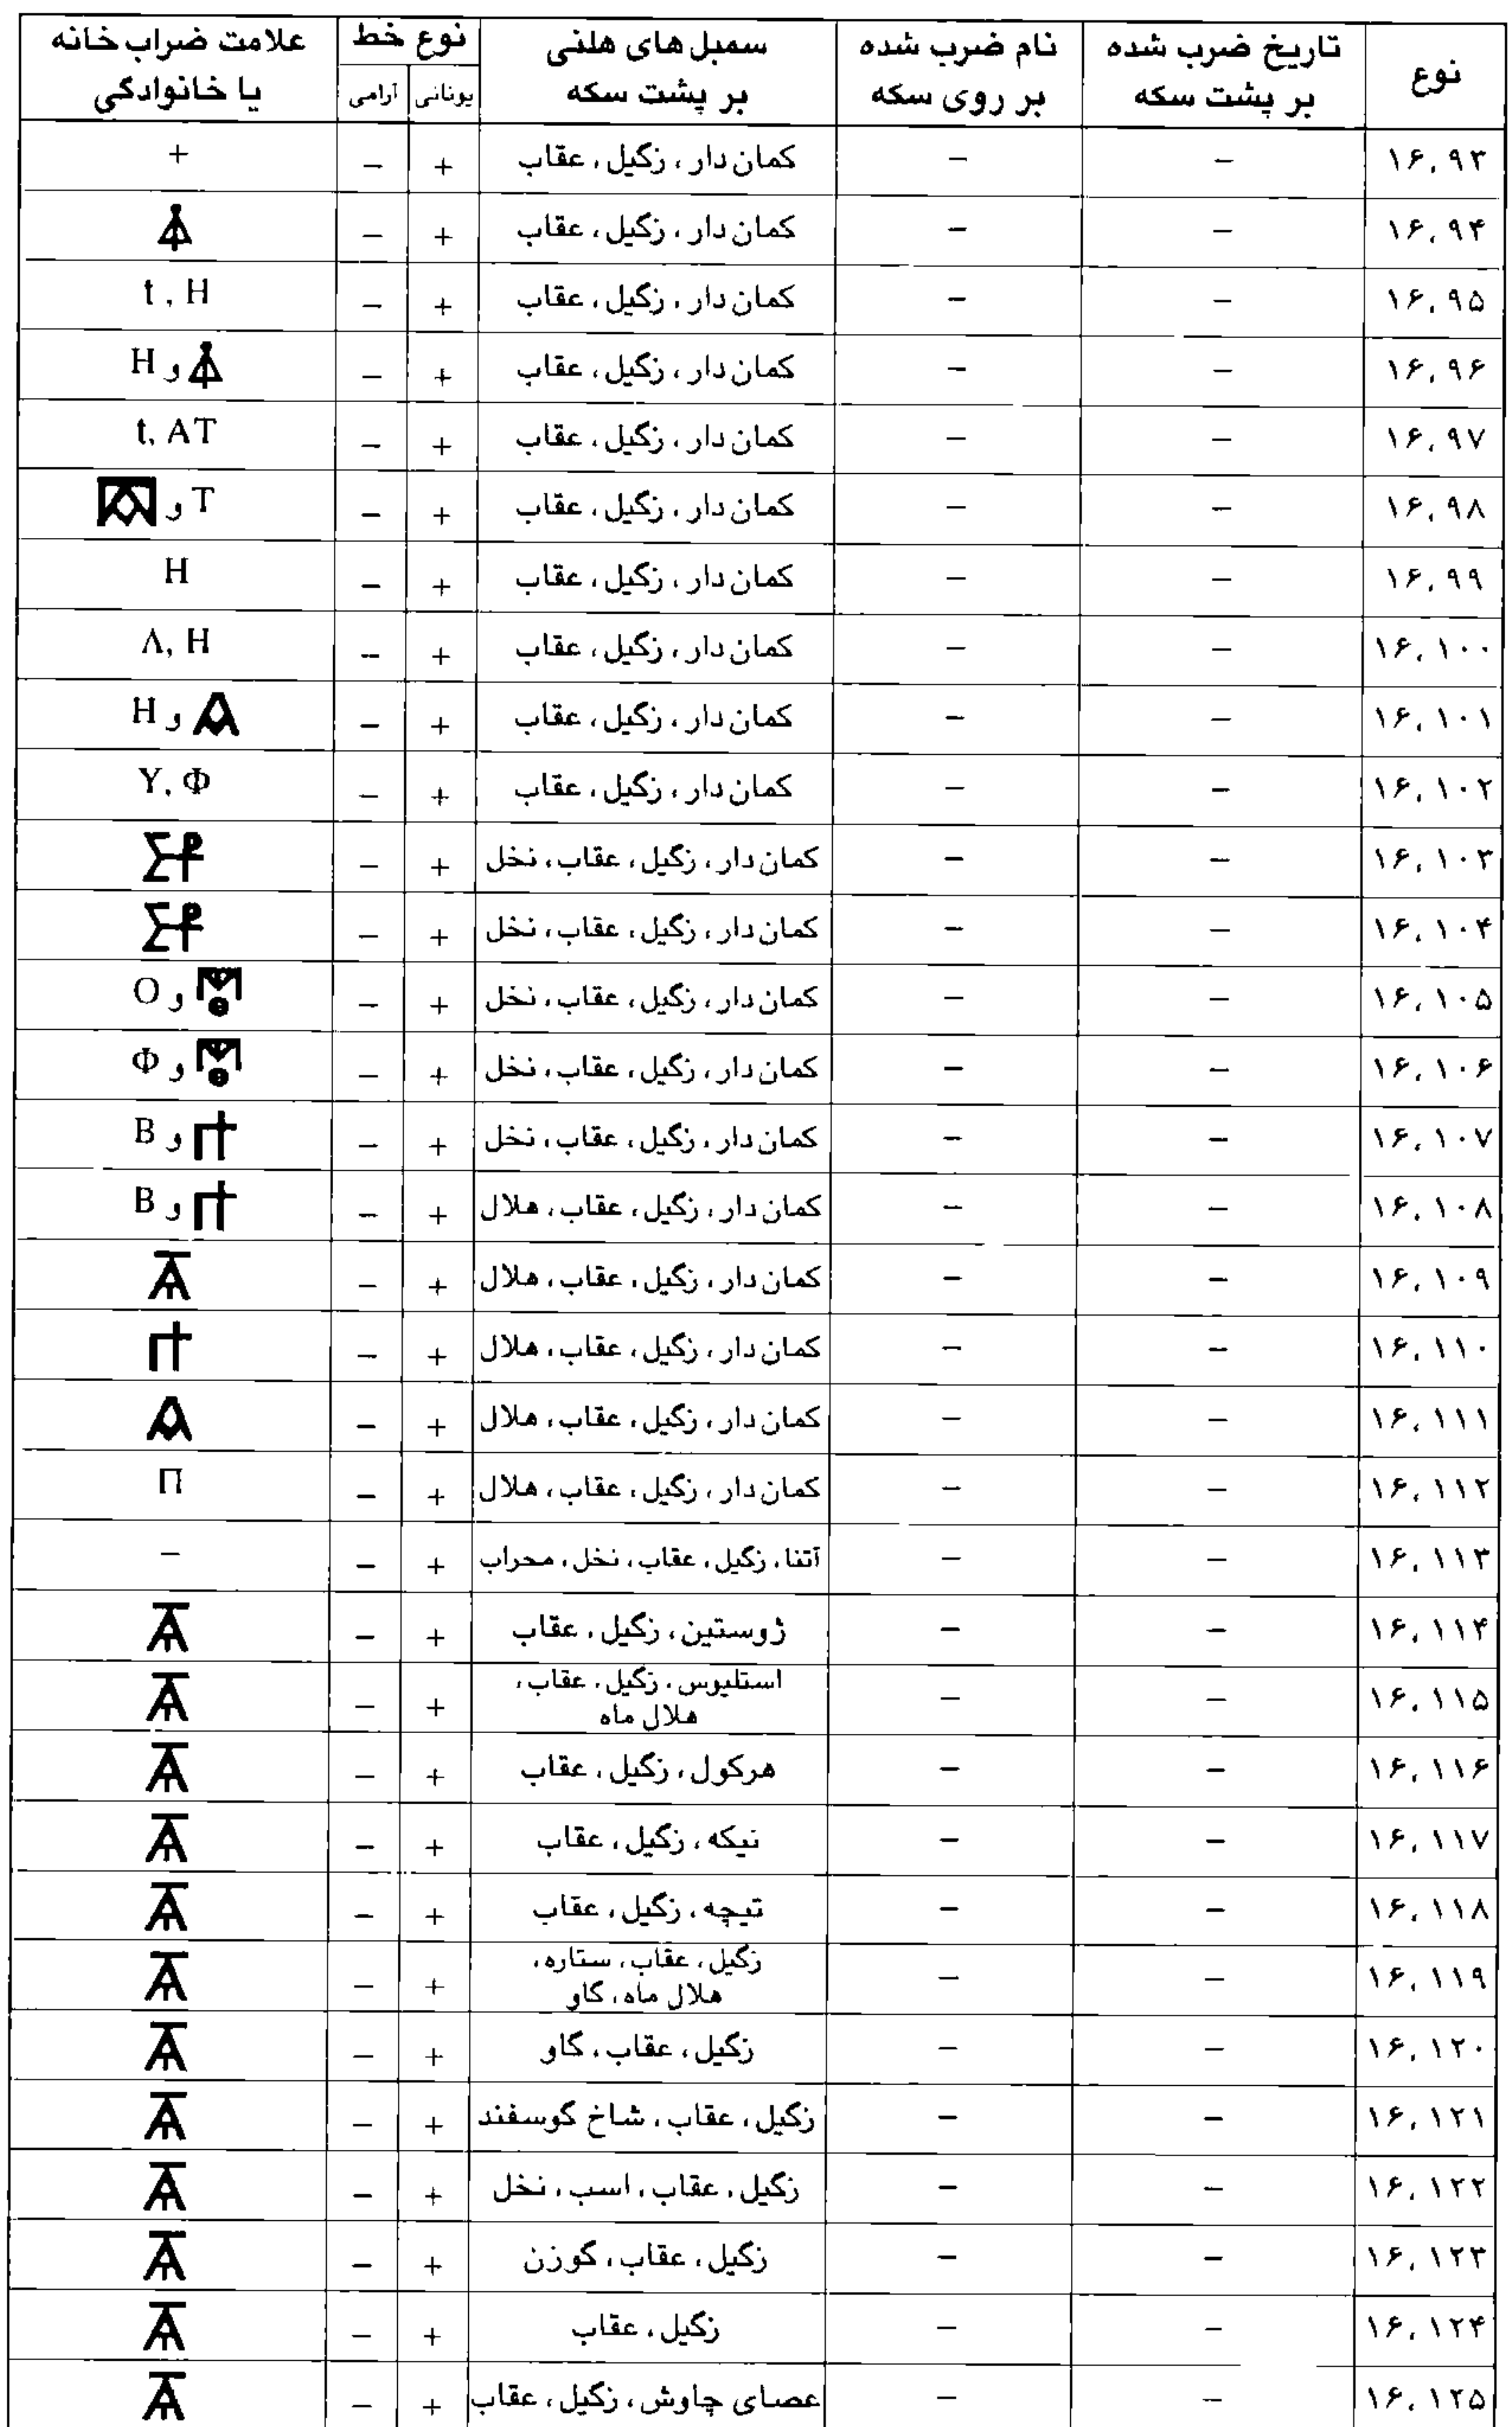 نوع | تاریخ ضرب شده بر پشت سکه | نام ضرب شده بر روی سکه | سمبل های هلنی بر پشت سکه | نوع خط: یونانی | نوع خط: آرامی | علامت ضراب خانه یا خانوادگی
۱۶,۹۳ | – | – | کمان دار، زگیل، عقاب | + | – | +
۱۶,۹۴ | – | – | کمان دار، زگیل، عقاب | + | – |
۱۶,۹۵ | – | – | کمان دار، زگیل، عقاب | + | – | t, H
۱۶,۹۶ | – | – | کمان دار، زگیل، عقاب | + | – | و H
۱۶,۹۷ | – | – | کمان دار، زگیل، عقاب | + | – | t, AT
۱۶,۹۸ | – | – | کمان دار، زگیل، عقاب | + | – | T و
۱۶,۹۹ | – | – | کمان دار، زگیل، عقاب | + | – | H
۱۶,۱۰۰ | – | – | کمان دار، زگیل، عقاب | + | – | Λ, H
۱۶,۱۰۱ | – | – | کمان دار، زگیل، عقاب | + | – | و H
۱۶,۱۰۲ | – | – | کمان دار، زگیل، عقاب | + | – | Υ, Φ
۱۶,۱۰۳ | – | – | کمان دار، زگیل، عقاب، نخل | + | – |
۱۶,۱۰۴ | – | – | کمان دار، زگیل، عقاب، نخل | + | – |
۱۶,۱۰۵ | – | – | کمان دار، زگیل، عقاب، نخل | + | – | و O
۱۶,۱۰۶ | – | – | کمان دار، زگیل، عقاب، نخل | + | – | و Φ
۱۶,۱۰۷ | – | – | کمان دار، زگیل، عقاب، نخل | + | – | و B
۱۶,۱۰۸ | – | – | کمان دار، زگیل، عقاب، هلال | + | – | و B
۱۶,۱۰۹ | – | – | کمان دار، زگیل، عقاب، هلال | + | – |
۱۶,۱۱۰ | – | – | کمان دار، زگیل، عقاب، هلال | + | – |
۱۶,۱۱۱ | – | – | کمان دار، زگیل، عقاب، هلال | + | – |
۱۶,۱۱۲ | – | – | کمان دار، زگیل، عقاب، هلال | + | – | Π
۱۶,۱۱۳ | – | – | آتنا، زگیل، عقاب، نخل، محراب | + | – | –
۱۶,۱۱۴ | – | – | ژوستین، زگیل، عقاب | + | – |
۱۶,۱۱۵ | – | – | استلیوس، زگیل، عقاب، هلال ماه | + | – |
۱۶,۱۱۶ | – | – | هرکول، زگیل، عقاب | + | – |
۱۶,۱۱۷ | – | – | نیکه، زگیل، عقاب | + | – |
۱۶,۱۱۸ | – | – | تیچه، زگیل، عقاب | + | – |
۱۶,۱۱۹ | – | – | زگیل، عقاب، ستاره، هلال ماه، گاو | + | – |
۱۶,۱۲۰ | – | – | زگیل، عقاب، گاو | + | – |
۱۶,۱۲۱ | – | – | زگیل، عقاب، شاخ گوسفند | + | – |
۱۶,۱۲۲ | – | – | زگیل، عقاب، اسب، نخل | + | – |
۱۶,۱۲۳ | – | – | زگیل، عقاب، گوزن | + | – |
۱۶,۱۲۴ | – | – | زگیل، عقاب | + | – |
۱۶,۱۲۵ | – | – | عصای چاوش، زگیل، عقاب | + | – |